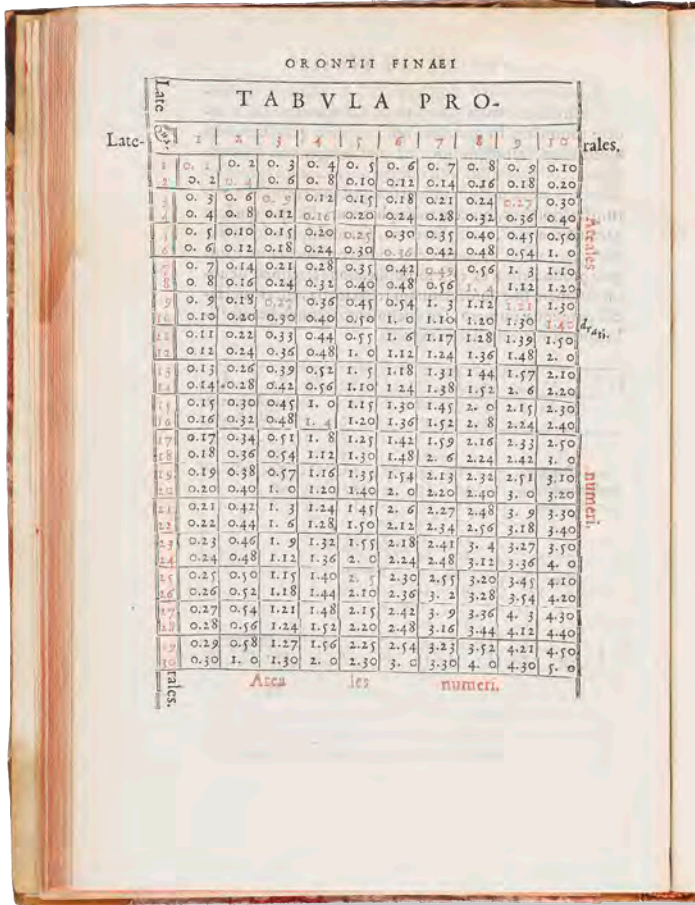 ORONTII FINAEI
Late
TABVLA PRO-
Late- 1 2 3 4 5 6 7 8 9 10 rales.
1 0. 1 0. 2 0. 3 0. 4 0. 5 0. 6 0. 7 0. 8 0. 9 0.10
2 0. 2 0. 4 0. 6 0. 8 0.10 0.12 0.14 0.16 0.18 0.20
3 0. 3 0. 6 0. 9 0.12 0.15 0.18 0.21 0.24 0.27 0.30
4 0. 4 0. 8 0.12 0.16 0.20 0.24 0.28 0.32 0.36 0.40
5 0. 5 0.10 0.15 0.20 0.25 0.30 0.35 0.40 0.45 0.50
6 0. 6 0.12 0.18 0.24 0.30 0.36 0.42 0.48 0.54 1. 0
Areales
7 0. 7 0.14 0.21 0.28 0.35 0.42 0.49 0.56 1. 3 1.10
8 0. 8 0.16 0.24 0.32 0.40 0.48 0.56 1. 4 1.12 1.20
9 0. 9 0.18 0.27 0.36 0.45 0.54 1. 3 1.12 1.21 1.30
10 0.10 0.20 0.30 0.40 0.50 1. 0 1.10 1.20 1.30 1.40
drati.
11 0.11 0.22 0.33 0.44 0.55 1. 6 1.17 1.28 1.39 1.50
12 0.12 0.24 0.36 0.48 1. 0 1.12 1.24 1.36 1.48 2. 0
13 0.13 0.26 0.39 0.52 1. 5 1.18 1.31 1 44 1.57 2.10
14 0.14 0.28 0.42 0.56 1.10 1 24 1.38 1.52 2. 6 2.20
15 0.15 0.30 0.45 1. 0 1.15 1.30 1.45 2. 0 2.15 2.30
16 0.16 0.32 0.48 1. 4 1.20 1.36 1.52 2. 8 2.24 2.40
17 0.17 0.34 0.51 1. 8 1.25 1.42 1.59 2.16 2.33 2.50
18 0.18 0.36 0.54 1.12 1.30 1.48 2. 6 2.24 2.42 3. 0
19 0.19 0.38 0.57 1.16 1.35 1.54 2.13 2.32 2.51 3.10
20 0.20 0.40 1. 0 1.20 1.40 2. 0 2.20 2.40 3. 0 3.20
numeri.
21 0.21 0.42 1. 3 1.24 1 45 2. 6 2.27 2.48 3. 9 3.30
22 0.22 0.44 1. 6 1.28 1.50 2.12 2.34 2.56 3.18 3.40
23 0.23 0.46 1. 9 1.32 1.55 2.18 2.41 3. 4 3.27 3.50
24 0.24 0.48 1.12 1.36 2. 0 2.24 2.48 3.12 3.36 4. 0
25 0.25 0.50 1.15 1.40 2. 5 2.30 2.55 3.20 3.45 4.10
26 0.26 0.52 1.18 1.44 2.10 2.36 3. 2 3.28 3.54 4.20
27 0.27 0.54 1.21 1.48 2.15 2.42 3. 9 3.36 4. 3 4.30
28 0.28 0.56 1.24 1.52 2.20 2.48 3.16 3.44 4.12 4.40
29 0.29 0.58 1.27 1.56 2.25 2.54 3.23 3.52 4.21 4.50
30 0.30 1. 0 1.30 2. 0 2.30 3. 0 3.30 4. 0 4.30 5. 0
rales.
Area les numeri.